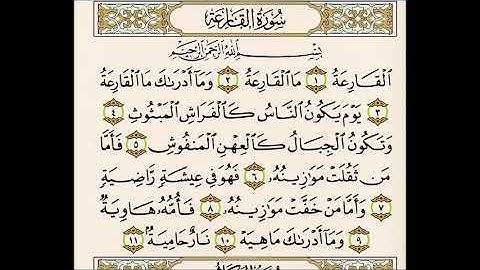 سُورَةُ القَارِعَةِ
بِسْمِ اللَّهِ الرَّحْمَٰنِ الرَّحِيمِ
الْقَارِعَةُ ١ مَا الْقَارِعَةُ ٢ وَمَا أَدْرَاكَ مَا الْقَارِعَةُ
٣ يَوْمَ يَكُونُ النَّاسُ كَالْفَرَاشِ الْمَبْثُوثِ ٤
وَتَكُونُ الْجِبَالُ كَالْعِهْنِ الْمَنْفُوشِ ٥ فَأَمَّا
مَن ثَقُلَتْ مَوَازِينُهُ ٦ فَهُوَ فِي عِيشَةٍ رَّاضِيَةٍ
٧ وَأَمَّا مَنْ خَفَّتْ مَوَازِينُهُ ٨ فَأُمُّهُ هَاوِيَةٌ
٩ وَمَا أَدْرَاكَ مَا هِيَهْ ١٠ نَارٌ حَامِيَةٌ ١١